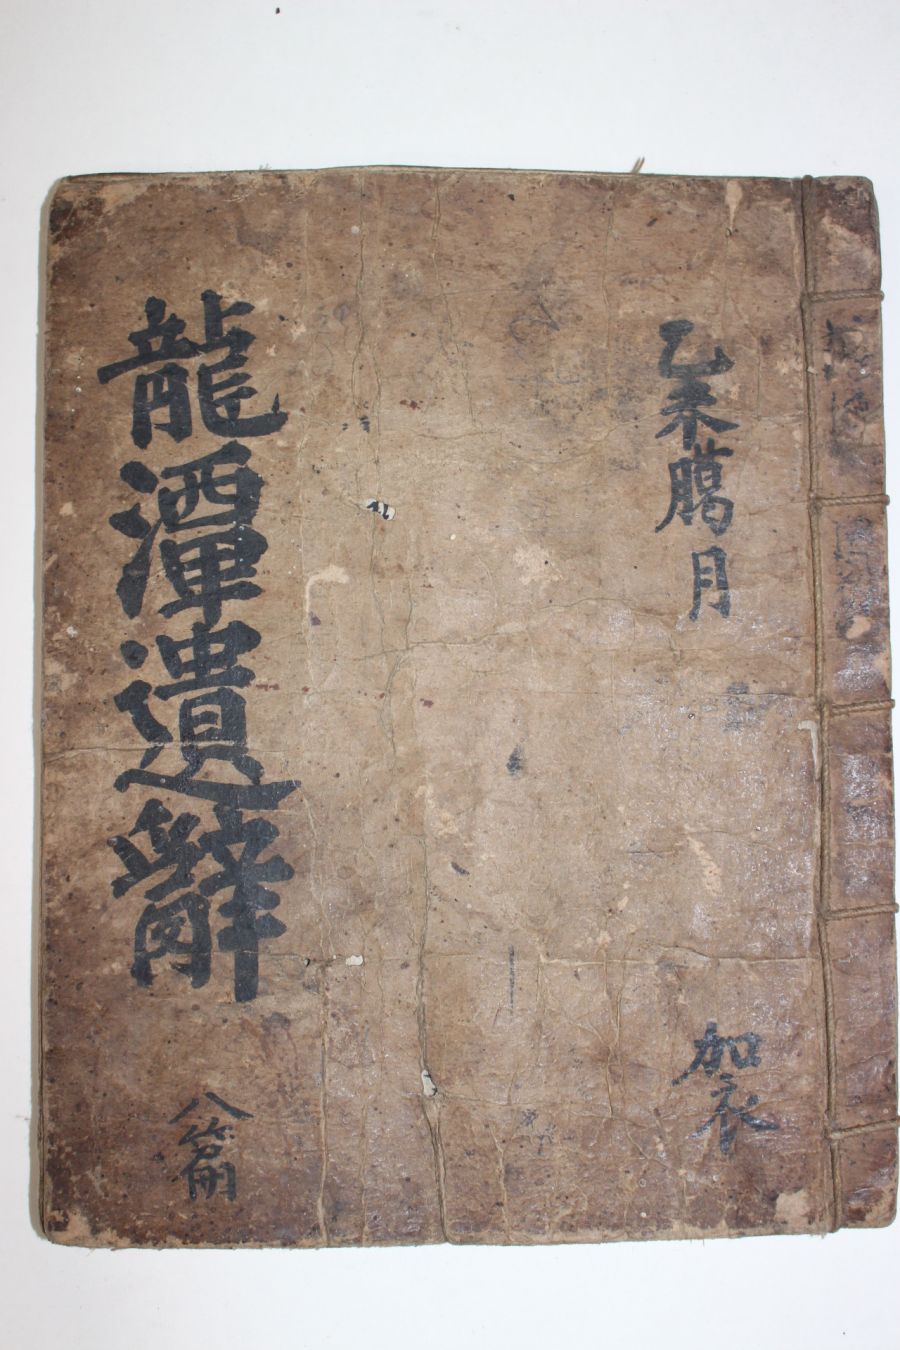 乙未臈月
加衣
龍潭遺辭
八篇